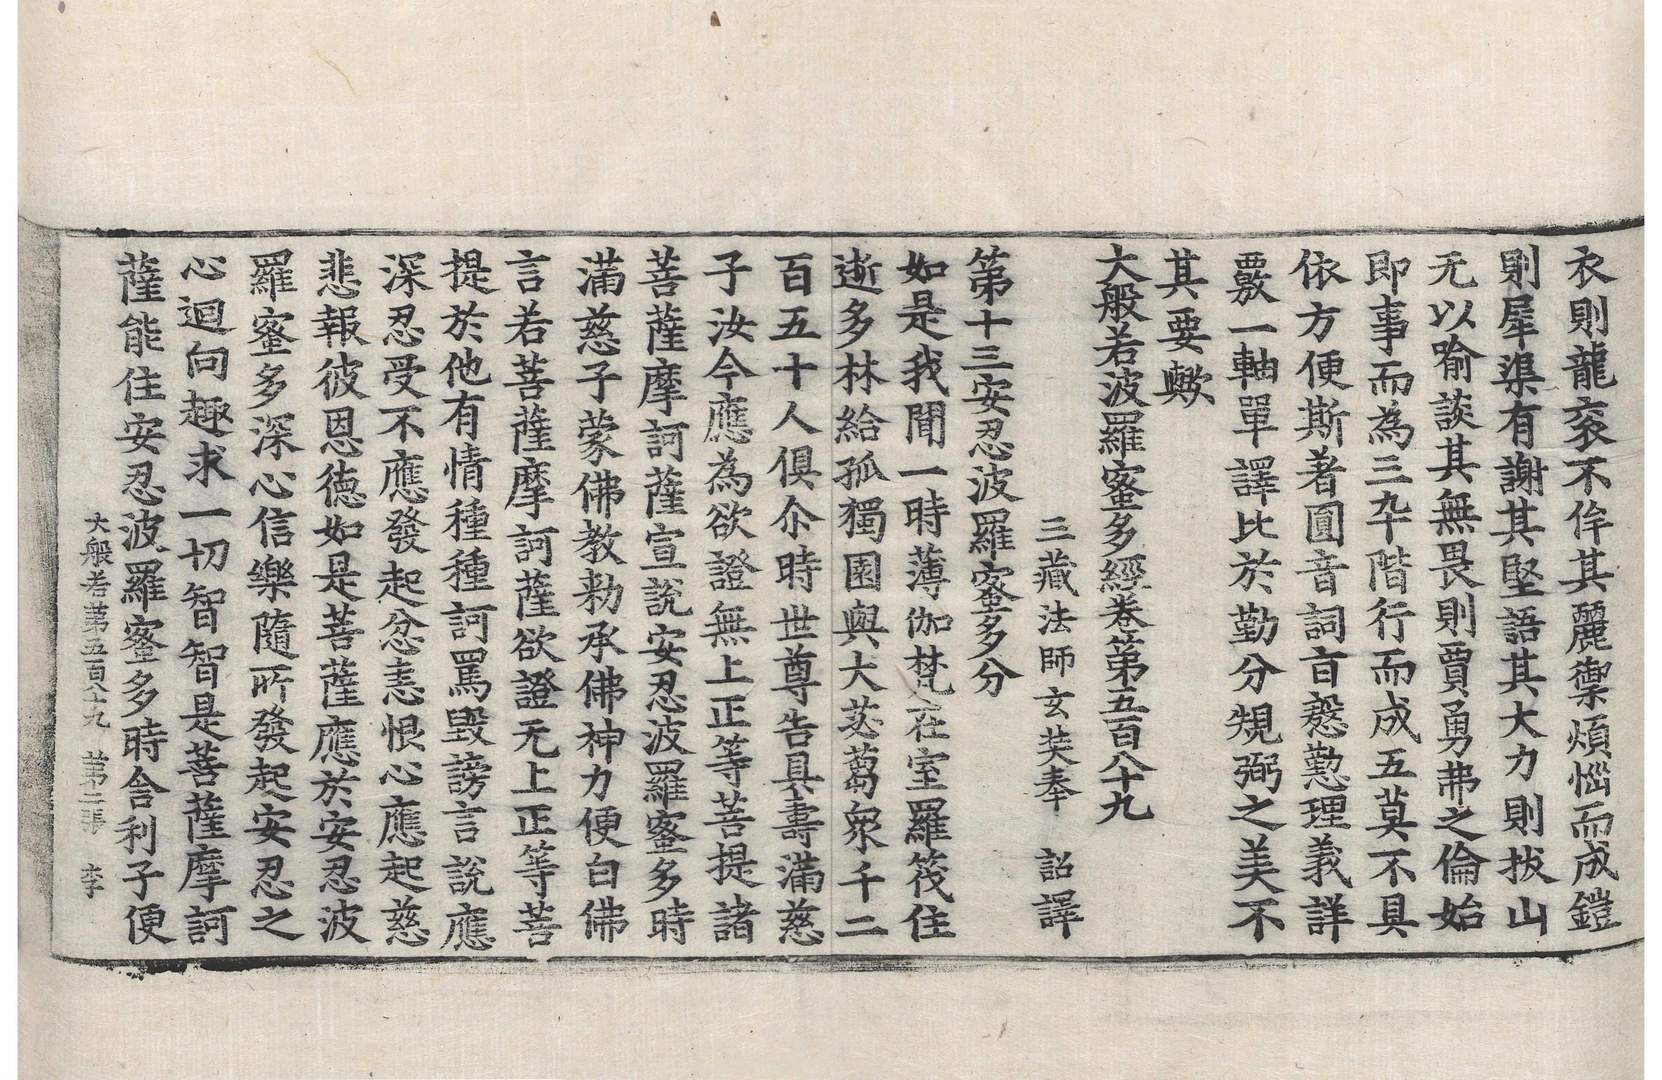 衣則龍衮不侔其麗禦煩惱而成鎧
則犀渠有謝其堅語其大力則拔山
无以喻談其無畏則賈勇弗之倫始
即事而為三卒階行而成五莫不具
依方便斯著圓音詞旨慇懃理義詳
覈一軸單譯比於勤分規弼之美不
其要歟
大般若波羅蜜多經卷第五百八十九
三藏法師玄奘奉 詔譯
第十三安忍波羅蜜多分
如是我聞一時薄伽梵在室羅筏住
逝多林給孤獨園與大苾蒭衆千二
百五十人俱尒時世尊告具壽滿慈
子汝今應為欲證無上正等菩提諸
菩薩摩訶薩宣說安忍波羅蜜多時
滿慈子蒙佛教勑承佛神力便白佛
言若菩薩摩訶薩欲證无上正等菩
提於他有情種種訶罵毀謗言說應
深忍受不應發起忿恚恨心應起慈
悲報彼恩德如是菩薩應於安忍波
羅蜜多深心信樂隨所發起安忍之
心迴向趣求一切智智是菩薩摩訶
薩能住安忍波羅蜜多時舍利子便
大般若第五百八十九 第二張 李